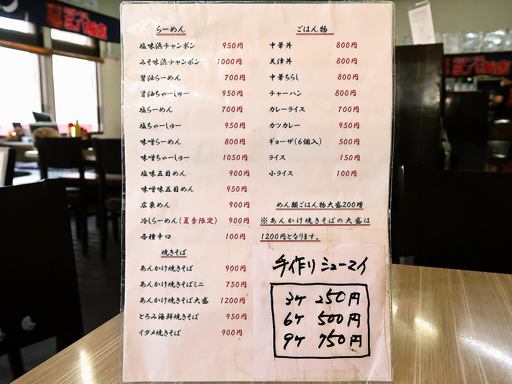 らーめん
塩味浜チャンポン 950円
みそ味浜チャンポン 1000円
醤油らーめん 700円
醤油ちゃーしゅー 950円
塩らーめん 700円
塩ちゃーしゅー 950円
味噌らーめん 800円
味噌ちゃーしゅー 1050円
塩味五目めん 900円
味噌味五目めん 950円
広東めん 900円
冷しらーめん(夏季限定) 900円
各種辛口 100円
焼きそば
あんかけ焼きそば 900円
あんかけ焼きそばミニ 750円
あんかけ焼きそば大盛 1200円
とろみ海鮮焼きそば 950円
イタメ焼きそば 900円
ごはん物
中華丼 800円
天津丼 800円
中華ちらし 800円
チャーハン 800円
カレーライス 700円
カツカレー 950円
ギョーザ(6個入) 500円
ライス 150円
小ライス 100円
めん類ごはん物大盛200増
※あんかけ焼きそばの大盛は
1200円となります。
手作りシューマイ
3ケ 250円
6ケ 500円
9ケ 750円